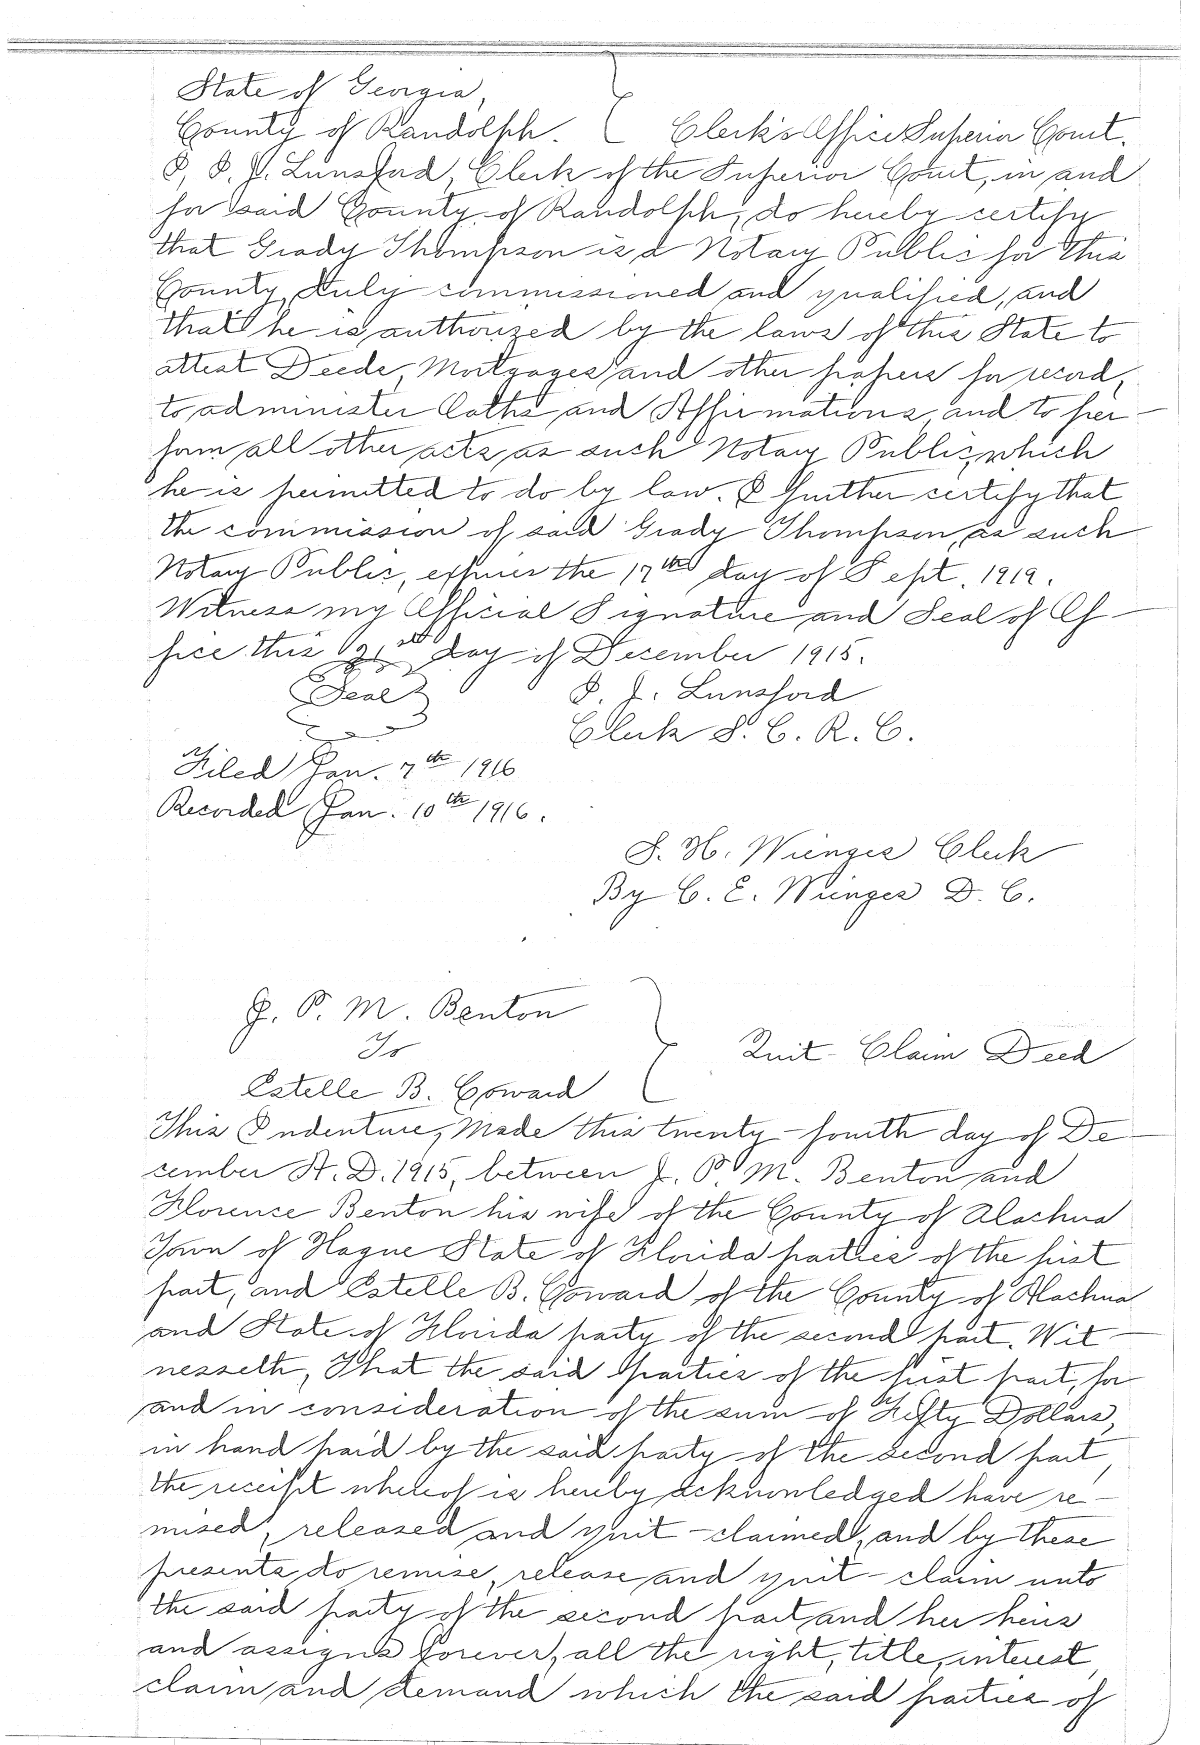 State of Georgia,
County of Randolph. Clerk's Office Superior Court.
I, I. J. Lunsford, Clerk of the Superior Court, in and
for said County of Randolph, do hereby certify
that Grady Thompson is a Notary Public for this
County, duly commissioned and qualified, and
that he is authorized by the laws of this State to
attest Deeds, Mortgages and other papers for record,
to administer Oaths and Affirmations, and to per-
form all other acts as such Notary Public, which
he is permitted to do by law. I further certify that
the commission of said Grady Thompson, as such
Notary Public, expires the 17th day of Sept. 1919.
Witness my Official Signature and Seal of Of-
fice this 21st day of December 1915.
Seal I. J. Lunsford
Clerk S. C. R. C.
Filed Jan. 7th 1916
Recorded Jan. 10th 1916.
S. H. Wienges Clerk
By C. E. Wienges D. C.
J. P. M. Benton
To Quit-Claim Deed
Estelle B. Coward
This Indenture, Made this twenty-fourth day of De-
cember A. D. 1915, between J. P. M. Benton and
Florence Benton his wife of the County of Alachua
Town of Hague State of Florida parties of the first
part, and Estelle B. Coward of the County of Alachua
and State of Florida party of the second part. Wit-
nesseth, That the said parties of the first part, for
and in consideration of the sum of Fifty Dollars,
in hand paid by the said party of the second part,
the receipt whereof is hereby acknowledged have re-
mised, released and quit-claimed, and by these
presents do remise, release and quit-claim unto
the said party of the second part and her heirs
and assigns forever, all the right, title, interest,
claim and demand which the said parties of